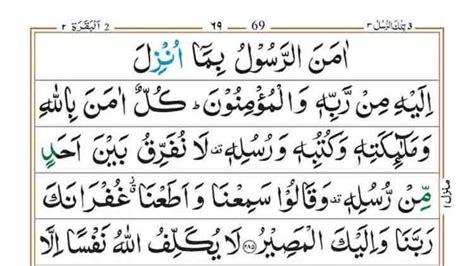 ٢ اَلْبَقَرَة 2 ٦٩ 69 تِلْكَ الرُّسُلُ ٣ 3
اٰمَنَ الرَّسُوْلُ بِمَاۤ اُنْزِلَ
اِلَيْهِ مِنْ رَّبِّهٖ وَالْمُؤْمِنُوْنَ ؕ كُلٌّ اٰمَنَ بِاللّٰهِ
وَمَلٰٓئِكَتِهٖ وَكُتُبِهٖ وَرُسُلِهٖ ۟ لَا نُفَرِّقُ بَيْنَ اَحَدٍ
مِّنْ رُّسُلِهٖ ۟ وَقَالُوْا سَمِعْنَا وَاَطَعْنَا ۫ غُفْرَانَكَ
رَبَّنَا وَاِلَيْكَ الْمَصِيْرُ ﴿۲۸۵﴾ لَا يُكَلِّفُ اللّٰهُ نَفْسًا اِلَّا
منزل ١